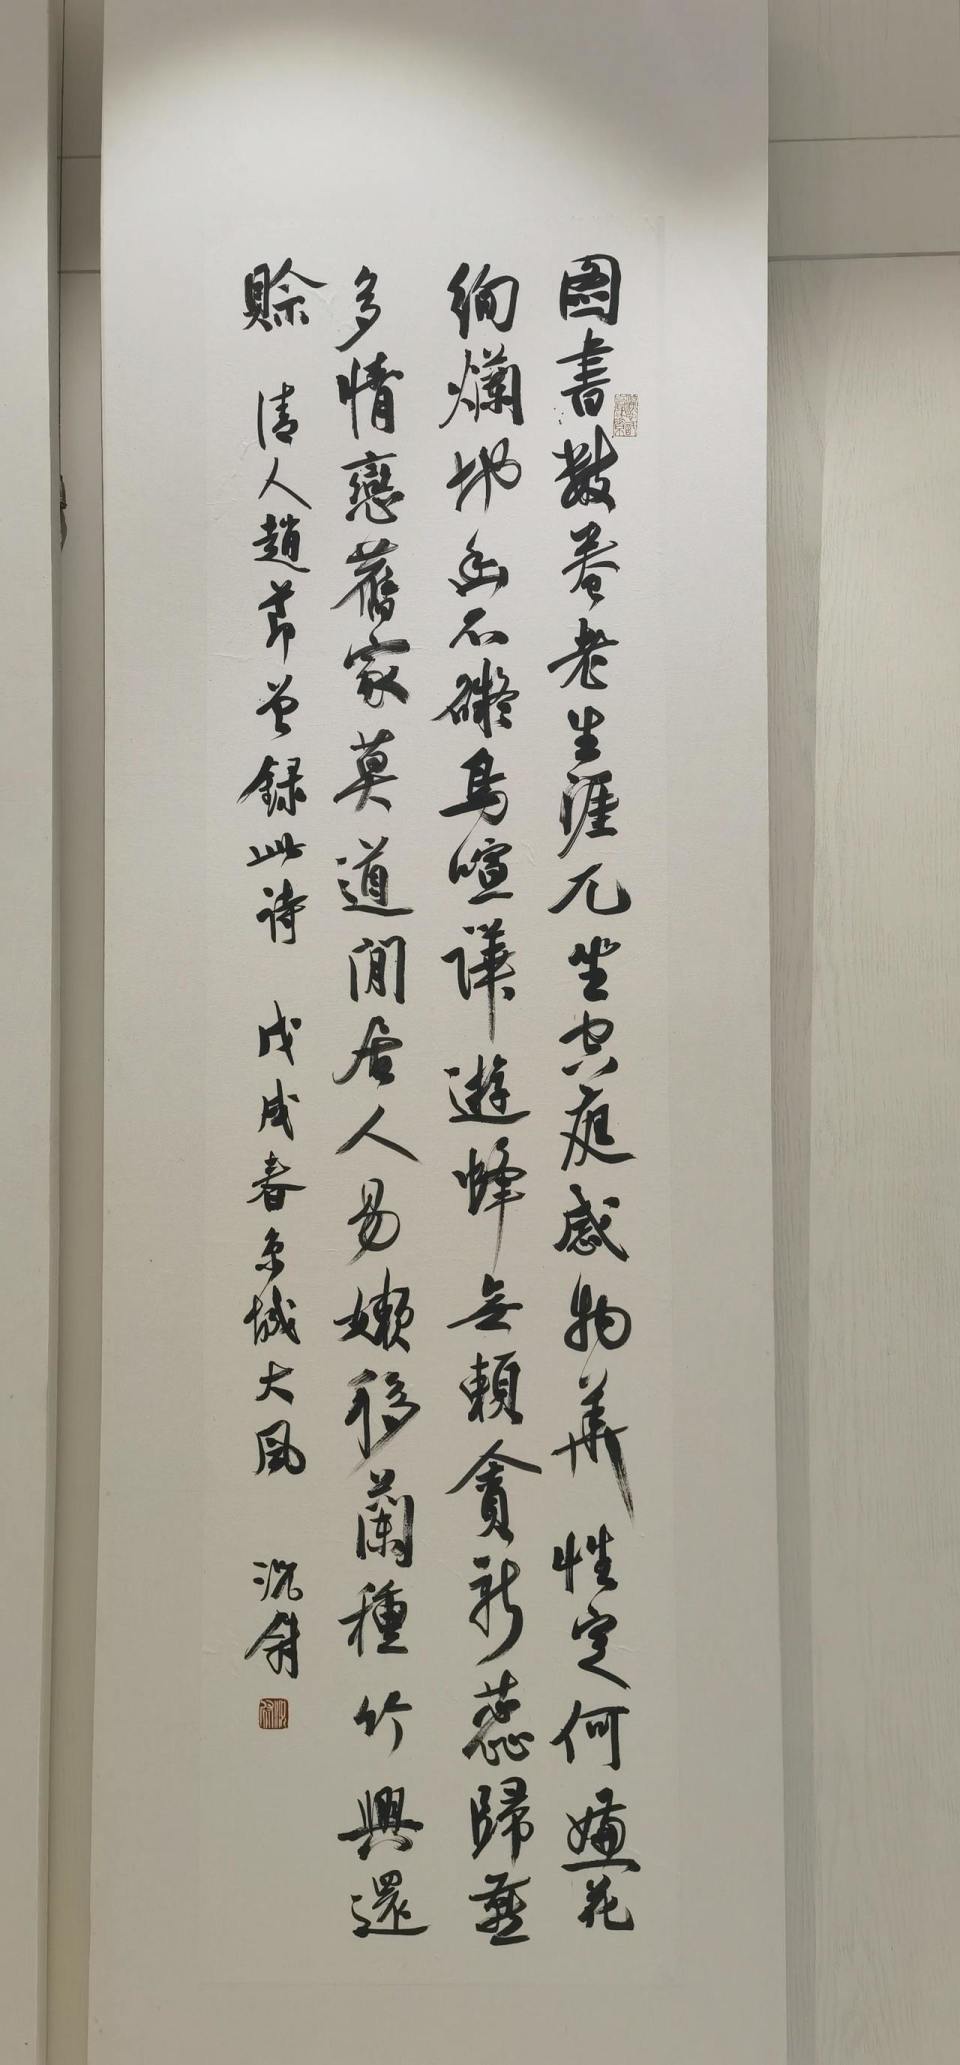 圖書數卷老生涯兀坐空庭感物華性定何嫌花
絢爛地幽不礙鳥喧譁遊蜂無賴貪新蕊歸燕
多情戀舊家莫道閒居人易嬾移蘭種竹興還
賒 清人趙節曾錄此詩 戊戌春京城大風